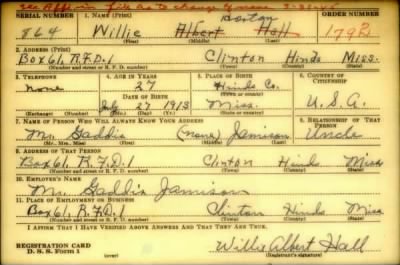 See Affi. in file to change name 3-31-45
SERIAL NUMBER 1. NAME (Print) ORDER NUMBER
Hoston
864 Willie Albert Hall 1792
(First) (Middle) (Last)
2. ADDRESS (Print)
Box 61, R.F.D. 1 Clinton Hinds Miss.
(Number and street or R. F. D. number) (Town) (County) (State)
3. TELEPHONE 4. AGE IN YEARS 5. PLACE OF BIRTH 6. COUNTRY OF CITIZENSHIP
None 27 Hinds Co.
DATE OF BIRTH (Town or county)
July 27 1913 Miss. U.S.A.
(Exchange) (Number) (Mo.) (Day) (Yr.) (State or country)
7. NAME OF PERSON WHO WILL ALWAYS KNOW YOUR ADDRESS 8. RELATIONSHIP OF THAT PERSON
Mr. Gaddis (none) Jamison Uncle
(Mr., Mrs., Miss) (First) (Middle) (Last)
9. ADDRESS OF THAT PERSON
Box 61, R.F.D. 1 Clinton Hinds Miss
(Number and street or R. F. D. number) (Town) (County) (State)
10. EMPLOYER'S NAME
Mr. Gaddis Jamison
11. PLACE OF EMPLOYMENT OR BUSINESS
Box 61, R.F.D. 1 Clinton Hinds Miss
(Number and street or R. F. D. number) (Town) (County) (State)
I AFFIRM THAT I HAVE VERIFIED ABOVE ANSWERS AND THAT THEY ARE TRUE.
REGISTRATION CARD
D. S. S. Form 1 (over) Willie Albert Hall
(Registrant's signature)